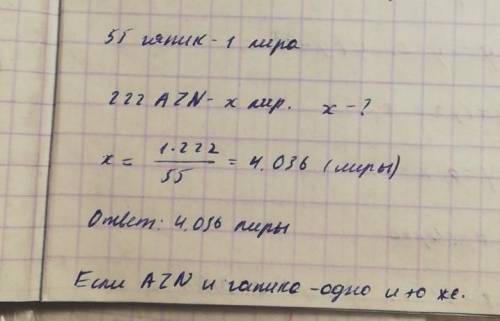 55 гяпик - 1 лира
222 AZN - х лир. х - ?
х = 1.222 / 55 = 4.036 (лиры)
Ответ: 4.036 лиры
Если AZN и гапика - одно и то же.